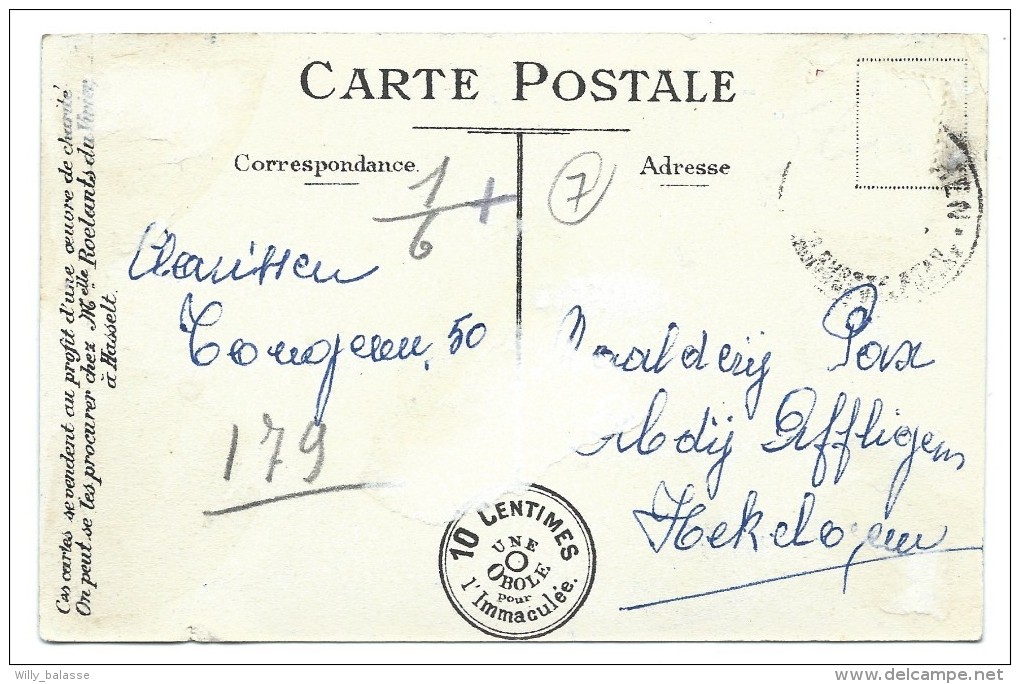 CARTE POSTALE
Correspondance.
Adresse
1/6 +
7
Clarissen
Tongeren, 50
179
Pax
Abdij Affligem
Hekelgem
10 CENTIMES
UNE
OBOLE
pour
l'Immaculée.
Ces cartes se vendent au profit d'une œuvre de charité
On peut se les procurer chez Melle Roelants du Vivier,
à Hasselt.
Willy_balasse
delcampe.net